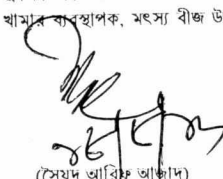 খামার ব্যবস্থাপক, মৎস্য বীজ উ
(সৈয়দ আরিফ আজাদ)